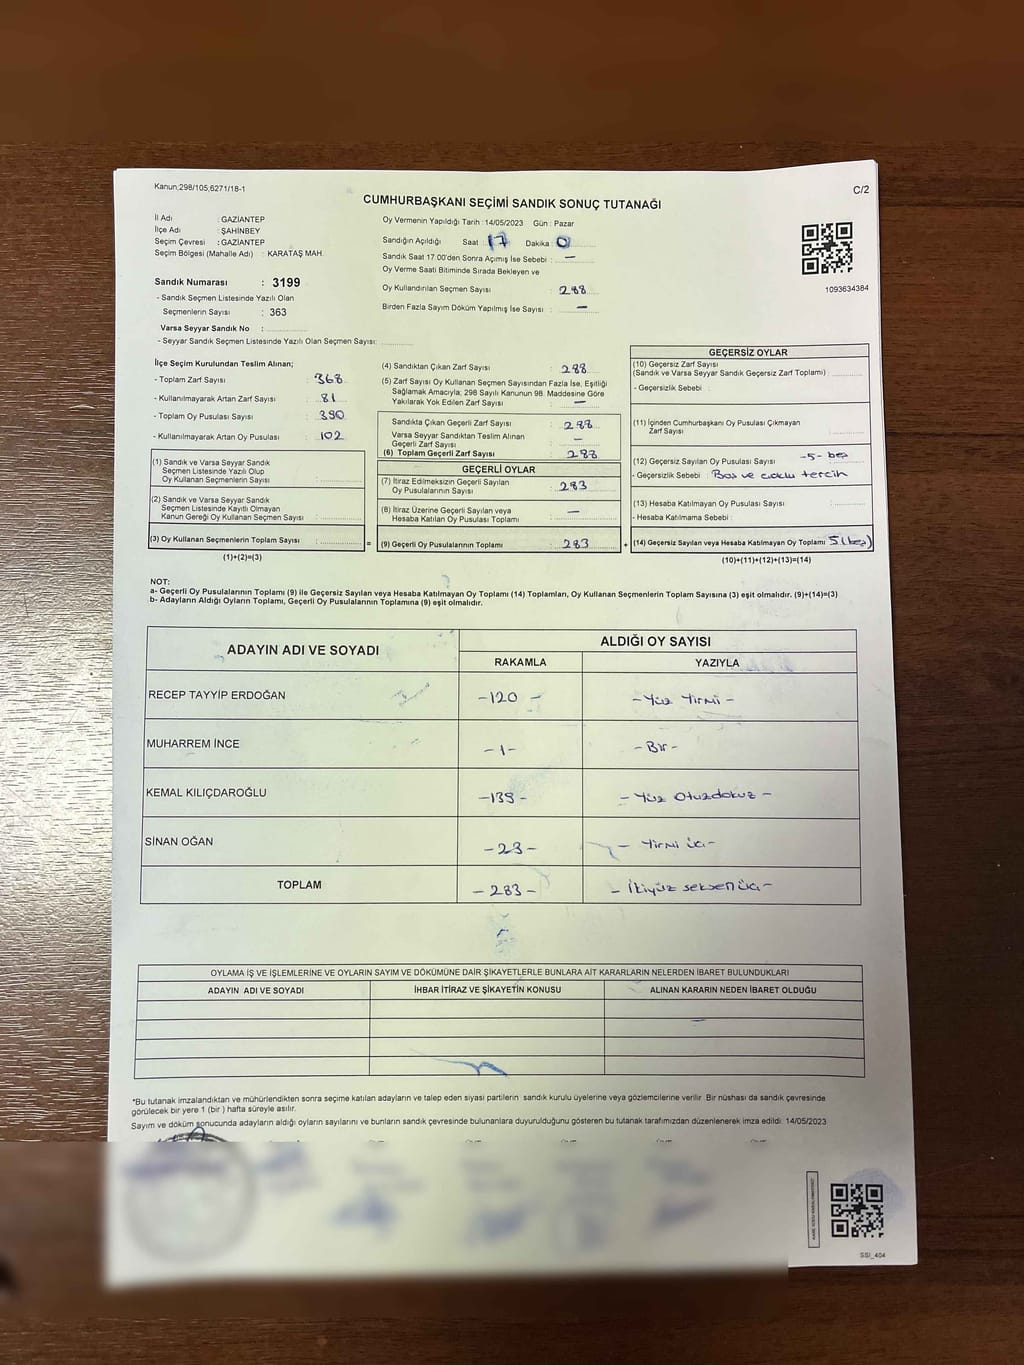 Kanun;298/105,6271/18-1
C/2
CUMHURBAŞKANI SEÇİMİ SANDIK SONUÇ TUTANAĞI
İl Adı : GAZİANTEP
İlçe Adı : ŞAHİNBEY
Seçim Çevresi : GAZİANTEP
Seçim Bölgesi (Mahalle Adı) : KARATAŞ MAH.
Sandık Numarası : 3199
- Sandık Seçmen Listesinde Yazılı Olan
Seçmenlerin Sayısı : 363
Varsa Seyyar Sandık No :
- Seyyar Sandık Seçmen Listesinde Yazılı Olan Seçmen Sayısı:
Oy Vermenin Yapıldığı Tarih :14/05/2023 Gün : Pazar
Sandığın Açıldığı Saat 17 Dakika 0
Sandık Saat 17.00'den Sonra Açımış İse Sebebi : —
Oy Verme Saati Bitiminde Sırada Bekleyen ve
Oy Kullandırılan Seçmen Sayısı : 288
Birden Fazla Sayım Döküm Yapılmış İse Sayısı : —
1093634384
İlçe Seçim Kurulundan Teslim Alınan;
- Toplam Zarf Sayısı : 368
- Kullanılmayarak Artan Zarf Sayısı : 81
- Toplam Oy Pusulası Sayısı : 390
- Kullanılmayarak Artan Oy Pusulası : 102
(1) Sandık ve Varsa Seyyar Sandık
Seçmen Listesinde Yazılı Olup
Oy Kullanan Seçmenlerin Sayısı :
(2) Sandık ve Varsa Seyyar Sandık
Seçmen Listesinde Kayıtlı Olmayan
Kanun Gereği Oy Kullanan Seçmen Sayısı :
(3) Oy Kullanan Seçmenlerin Toplam Sayısı :
(1)+(2)=(3)
=
(4) Sandıktan Çıkan Zarf Sayısı : 288
(5) Zarf Sayısı Oy Kullanan Seçmen Sayısından Fazla İse, Eşitliği
Sağlamak Amacıyla; 298 Sayılı Kanunun 98. Maddesine Göre
Yakılarak Yok Edilen Zarf Sayısı : —
Sandıkta Çıkan Geçerli Zarf Sayısı : 288
Varsa Seyyar Sandıktan Teslim Alınan
Geçerli Zarf Sayısı : —
(6) Toplam Geçerli Zarf Sayısı : 288
GEÇERLİ OYLAR
(7) İtiraz Edilmeksizin Geçerli Sayılan
Oy Pusulalarının Sayısı : 283
(8) İtiraz Üzerine Geçerli Sayılan veya
Hesaba Katılan Oy Pusulası Toplamı : —
(9) Geçerli Oy Pusulalarının Toplamı : 283
+
GEÇERSİZ OYLAR
(10) Geçersiz Zarf Sayısı
(Sandık ve Varsa Seyyar Sandık Geçersiz Zarf Toplamı) :
- Geçersizlik Sebebi :
(11) İçinden Cumhurbaşkanı Oy Pusulası Çıkmayan
Zarf Sayısı :
(12) Geçersiz Sayılan Oy Pusulası Sayısı : -5- beş
- Geçersizlik Sebebi : Boş ve çoklu tercih
(13) Hesaba Katılmayan Oy Pusulası Sayısı :
- Hesaba Katılmama Sebebi :
(14) Geçersiz Sayılan veya Hesaba Katılmayan Oy Toplamı 5 (beş)
(10)+(11)+(12)+(13)=(14)
NOT:
a- Geçerli Oy Pusulalarının Toplamı (9) ile Geçersiz Sayılan veya Hesaba Katılmayan Oy Toplamı (14) Toplamları, Oy Kullanan Seçmenlerin Toplam Sayısına (3) eşit olmalıdır. (9)+(14)=(3)
b- Adayların Aldığı Oyların Toplamı, Geçerli Oy Pusulalarının Toplamına (9) eşit olmelidir.
ADAYIN ADI VE SOYADI
ALDIĞI OY SAYISI
RAKAMLA YAZIYLA
RECEP TAYYİP ERDOĞAN -120 - -Yüz Yirmi-
MUHARREM İNCE -1- -Bir-
KEMAL KILIÇDAROĞLU -139- -Yüz Otuzdokuz-
SİNAN OĞAN -23- - Yirmi üç-
TOPLAM -283- - İkiyüz seksen üç-
OYLAMA İŞ VE İŞLEMLERİNE VE OYLARIN SAYIM VE DÖKÜMÜNE DAİR ŞİKAYETLERLE BUNLARA AİT KARARLARIN NELERDEN İBARET BULUNDUKLARI
ADAYIN ADI VE SOYADI İHBAR İTİRAZ VE ŞİKAYETİN KONUSU ALINAN KARARIN NEDEN İBARET OLDUĞU
*Bu tutanak imzalandıktan ve mühürlendikten sonra seçime katılan adayların ve talep eden siyasi partilerin sandık kurulu üyelerine veya gözlemcilerine verilir. Bir nüshası da sandık çevresinde
görülecek bir yere 1 (bir ) hafta süreyle asılır.
Sayım ve döküm sonucunda adayların aldığı oyların sayılarını ve bunların sandık çevresinde bulunanlara duyurulduğunu gösteren bu tutanak tarafımızdan düzenlenerek imza edildi. 14/05/2023
SSI_404